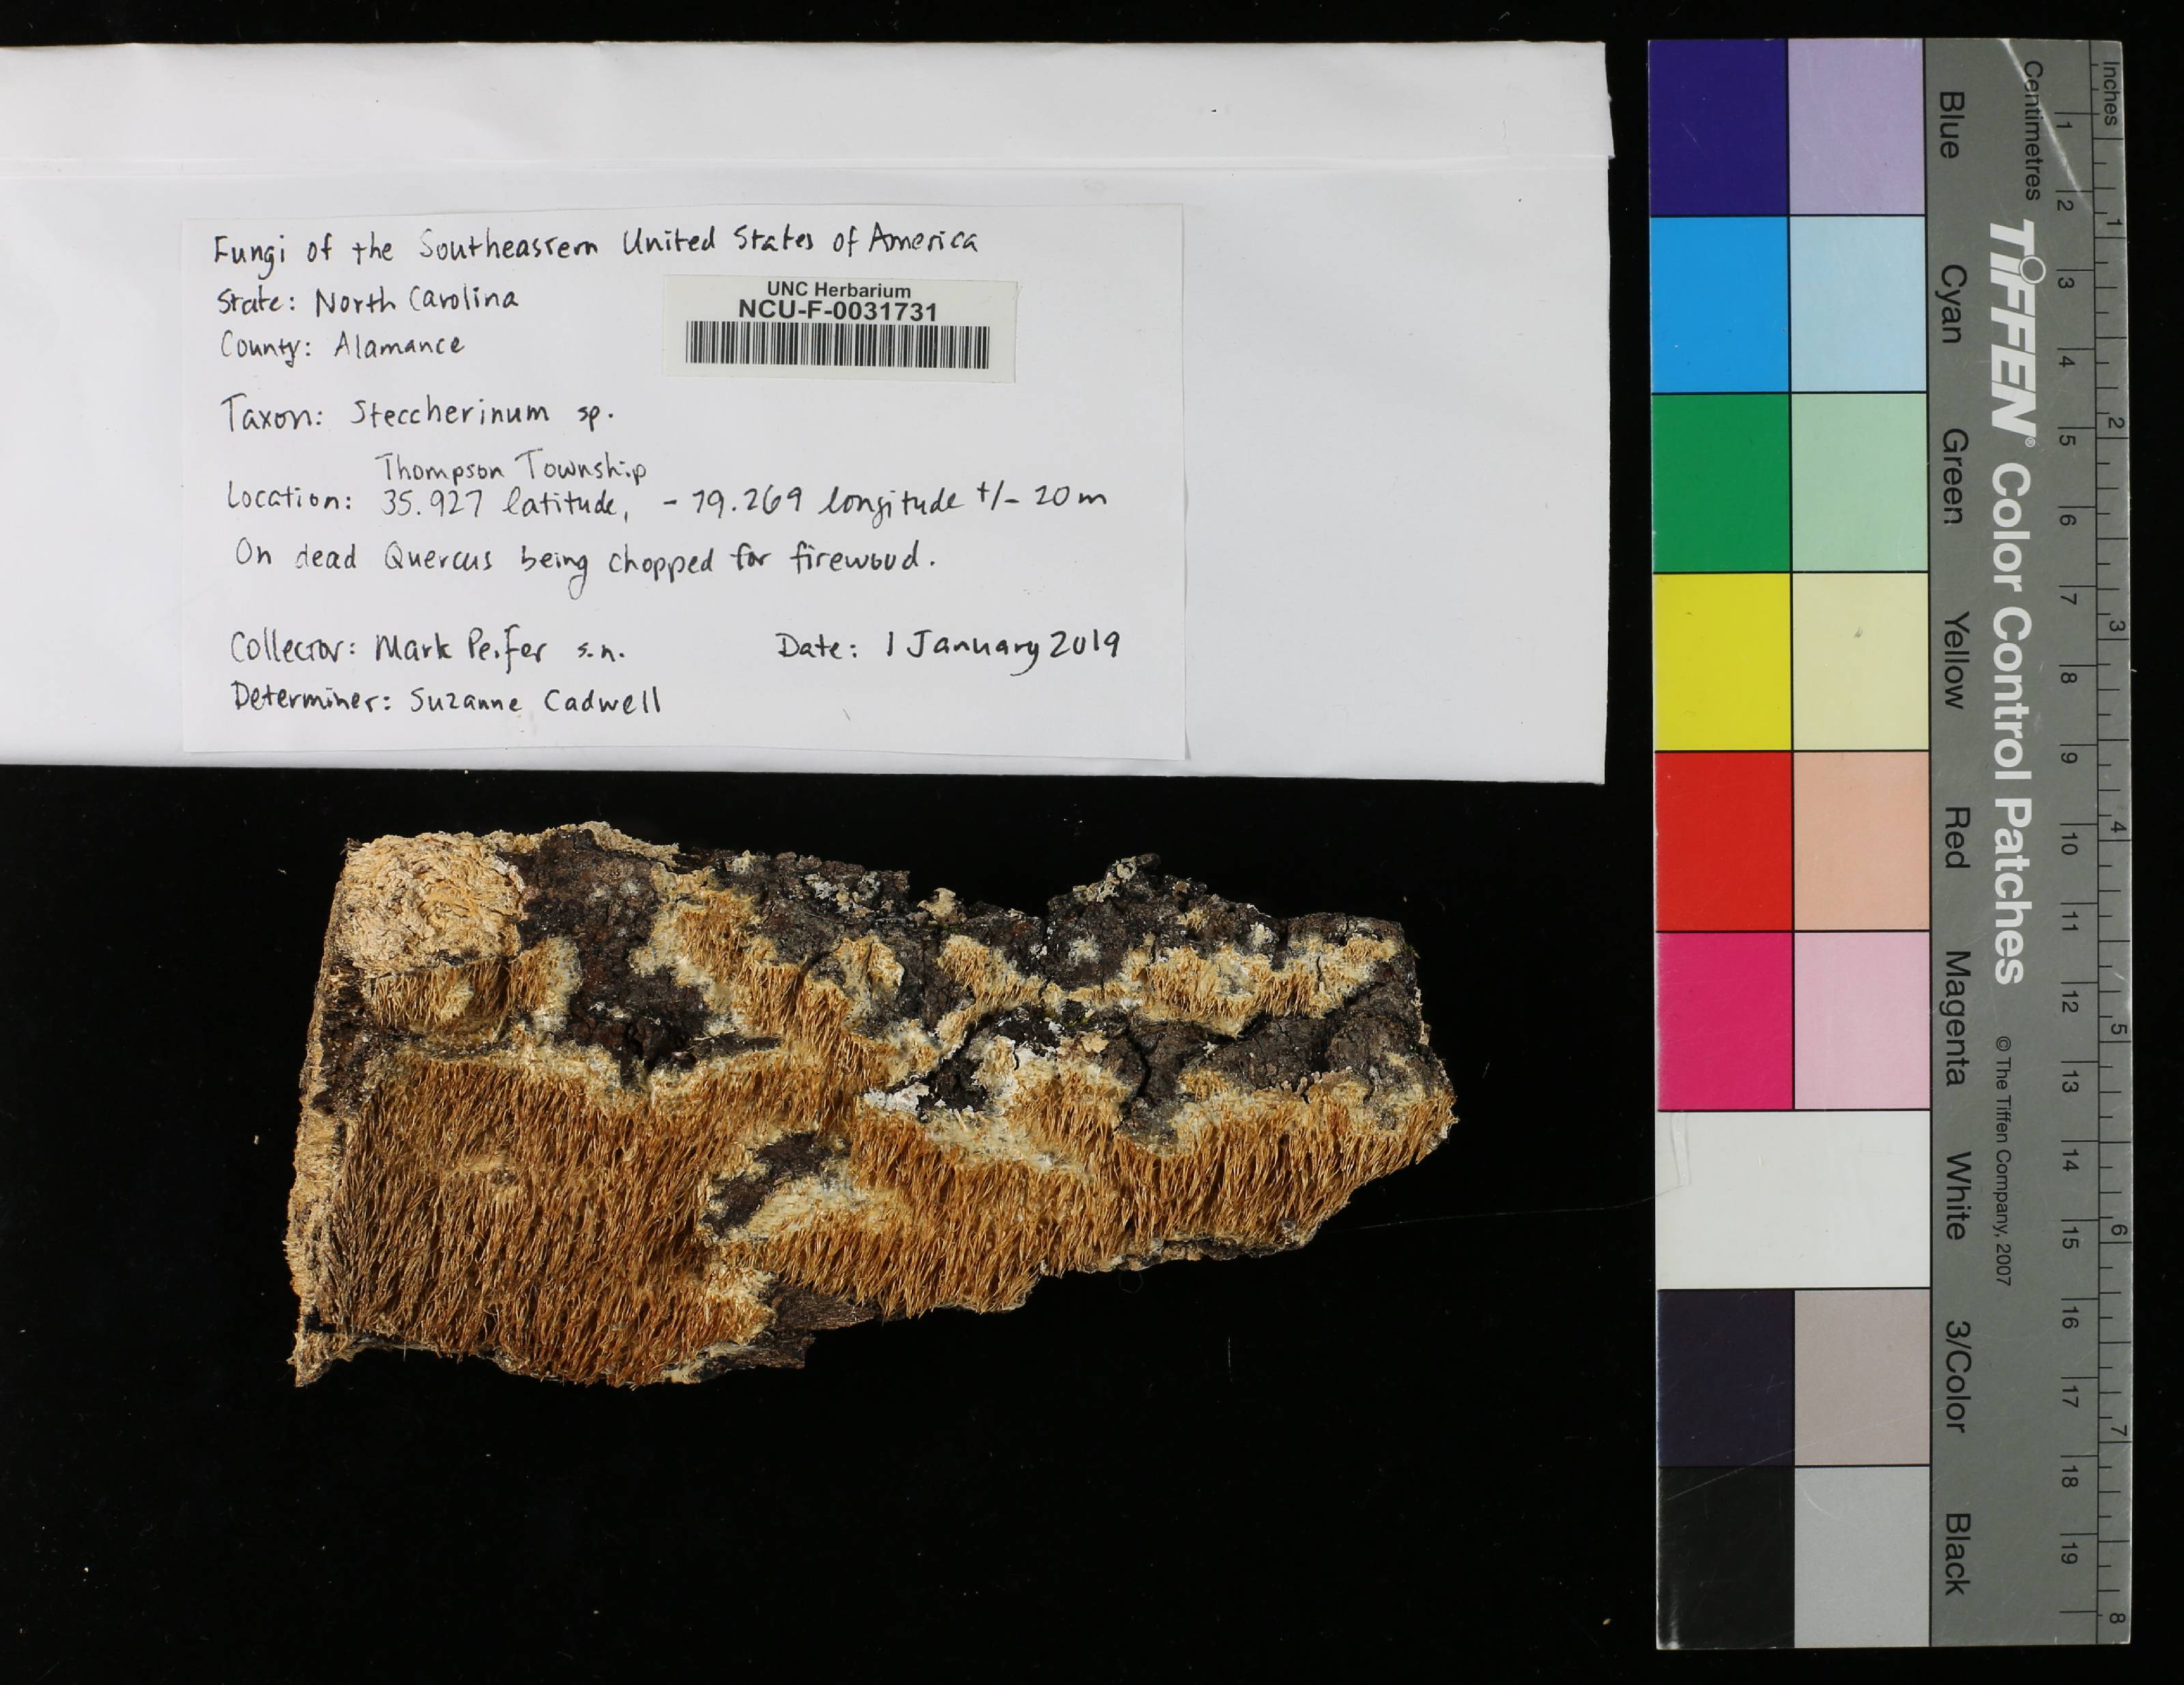 Fungi of the Southeastern United States of America
State: North Carolina
UNC Herbarium
NCU-F-0031731
County: Alamance
Taxon: Steccherinum sp.
Thompson Township
Location: 35.927 latitude, -79.269 longitude +/- 20 m
On dead Quercus being chopped for firewood.
Collector: Mark Peifer s.n. Date: 1 January 2019
Determiner: Suzanne Cadwell
Inches 1 2 3 4 5 6 7 8
Centimetres 1 2 3 4 5 6 7 8 9 10 11 12 13 14 15 16 17 18 19
TIFFEN® Color Control Patches © The Tiffen Company, 2007
Blue Cyan Green Yellow Red Magenta White 3/Color Black